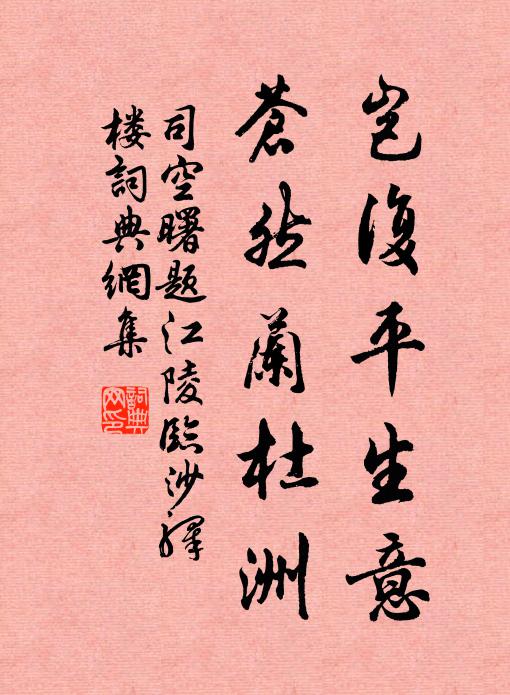 豈復平生意
蒼然蘭杜洲
司空曙題江陵臨沙驛
樓詞典網集
詞典
网印